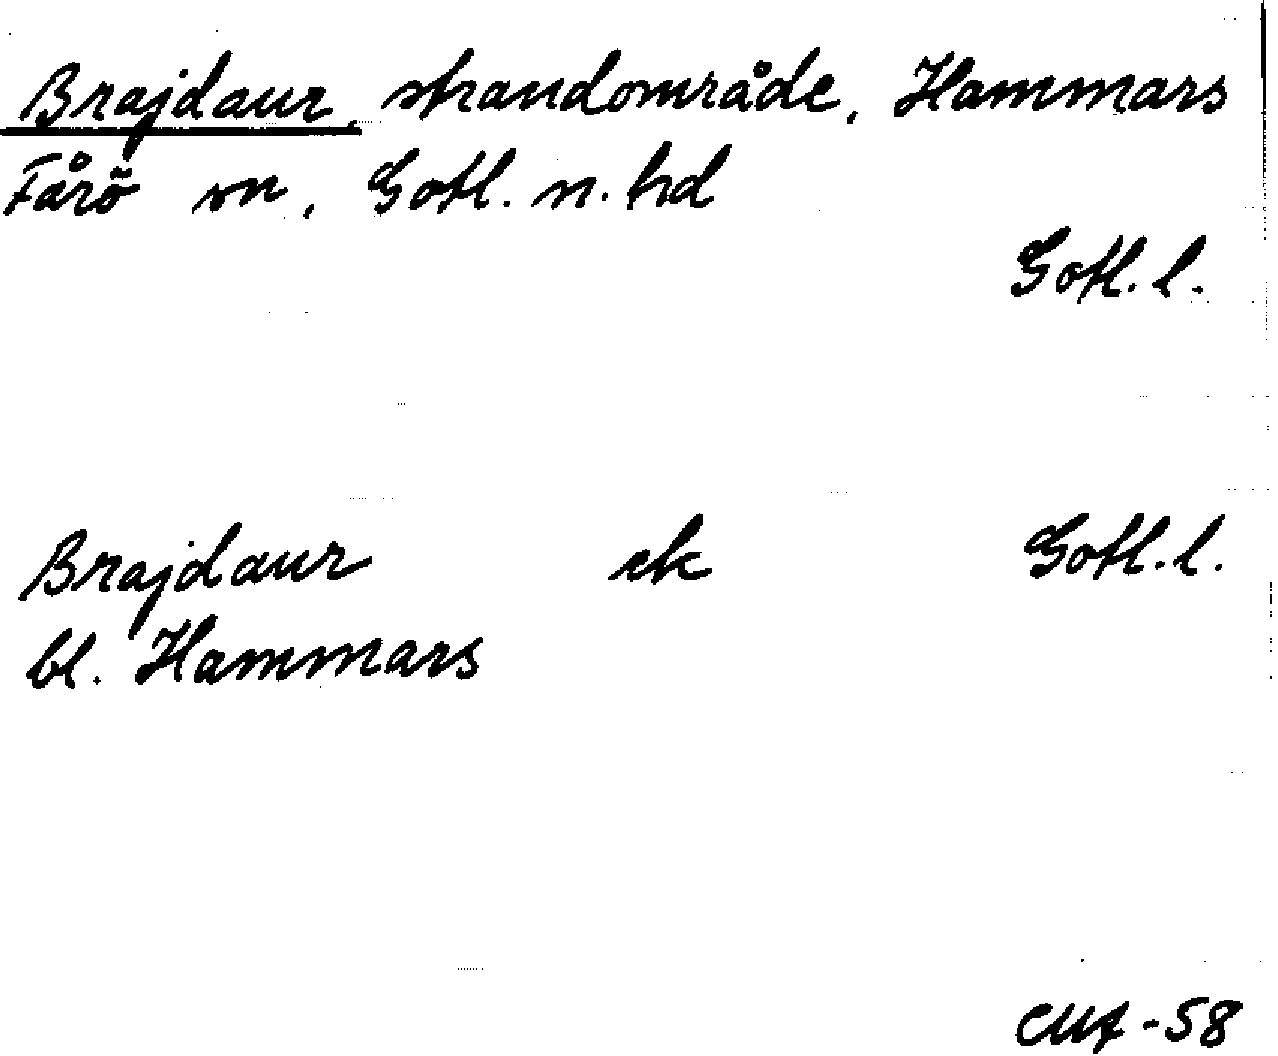 Brajdaur, strandområde, Hammars
Fårö sn, Gotl. n. hd
Gotl. l.
Brajdaur ek Gotl. l.
bl. Hammars
-58